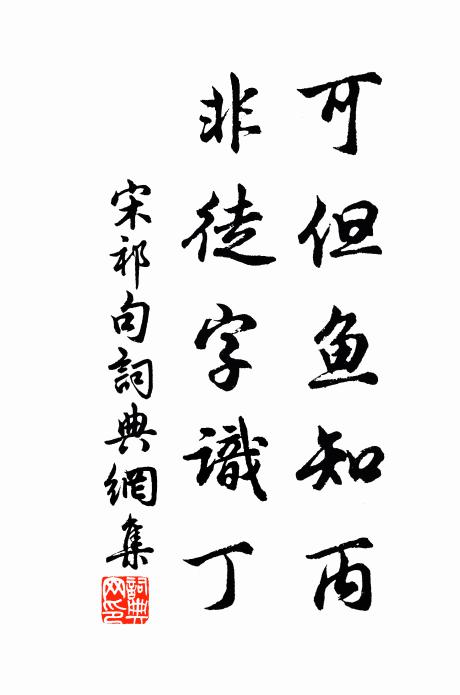 可但鱼知丙
非徒字識丁
宋祁句詞典網集
詞典网印